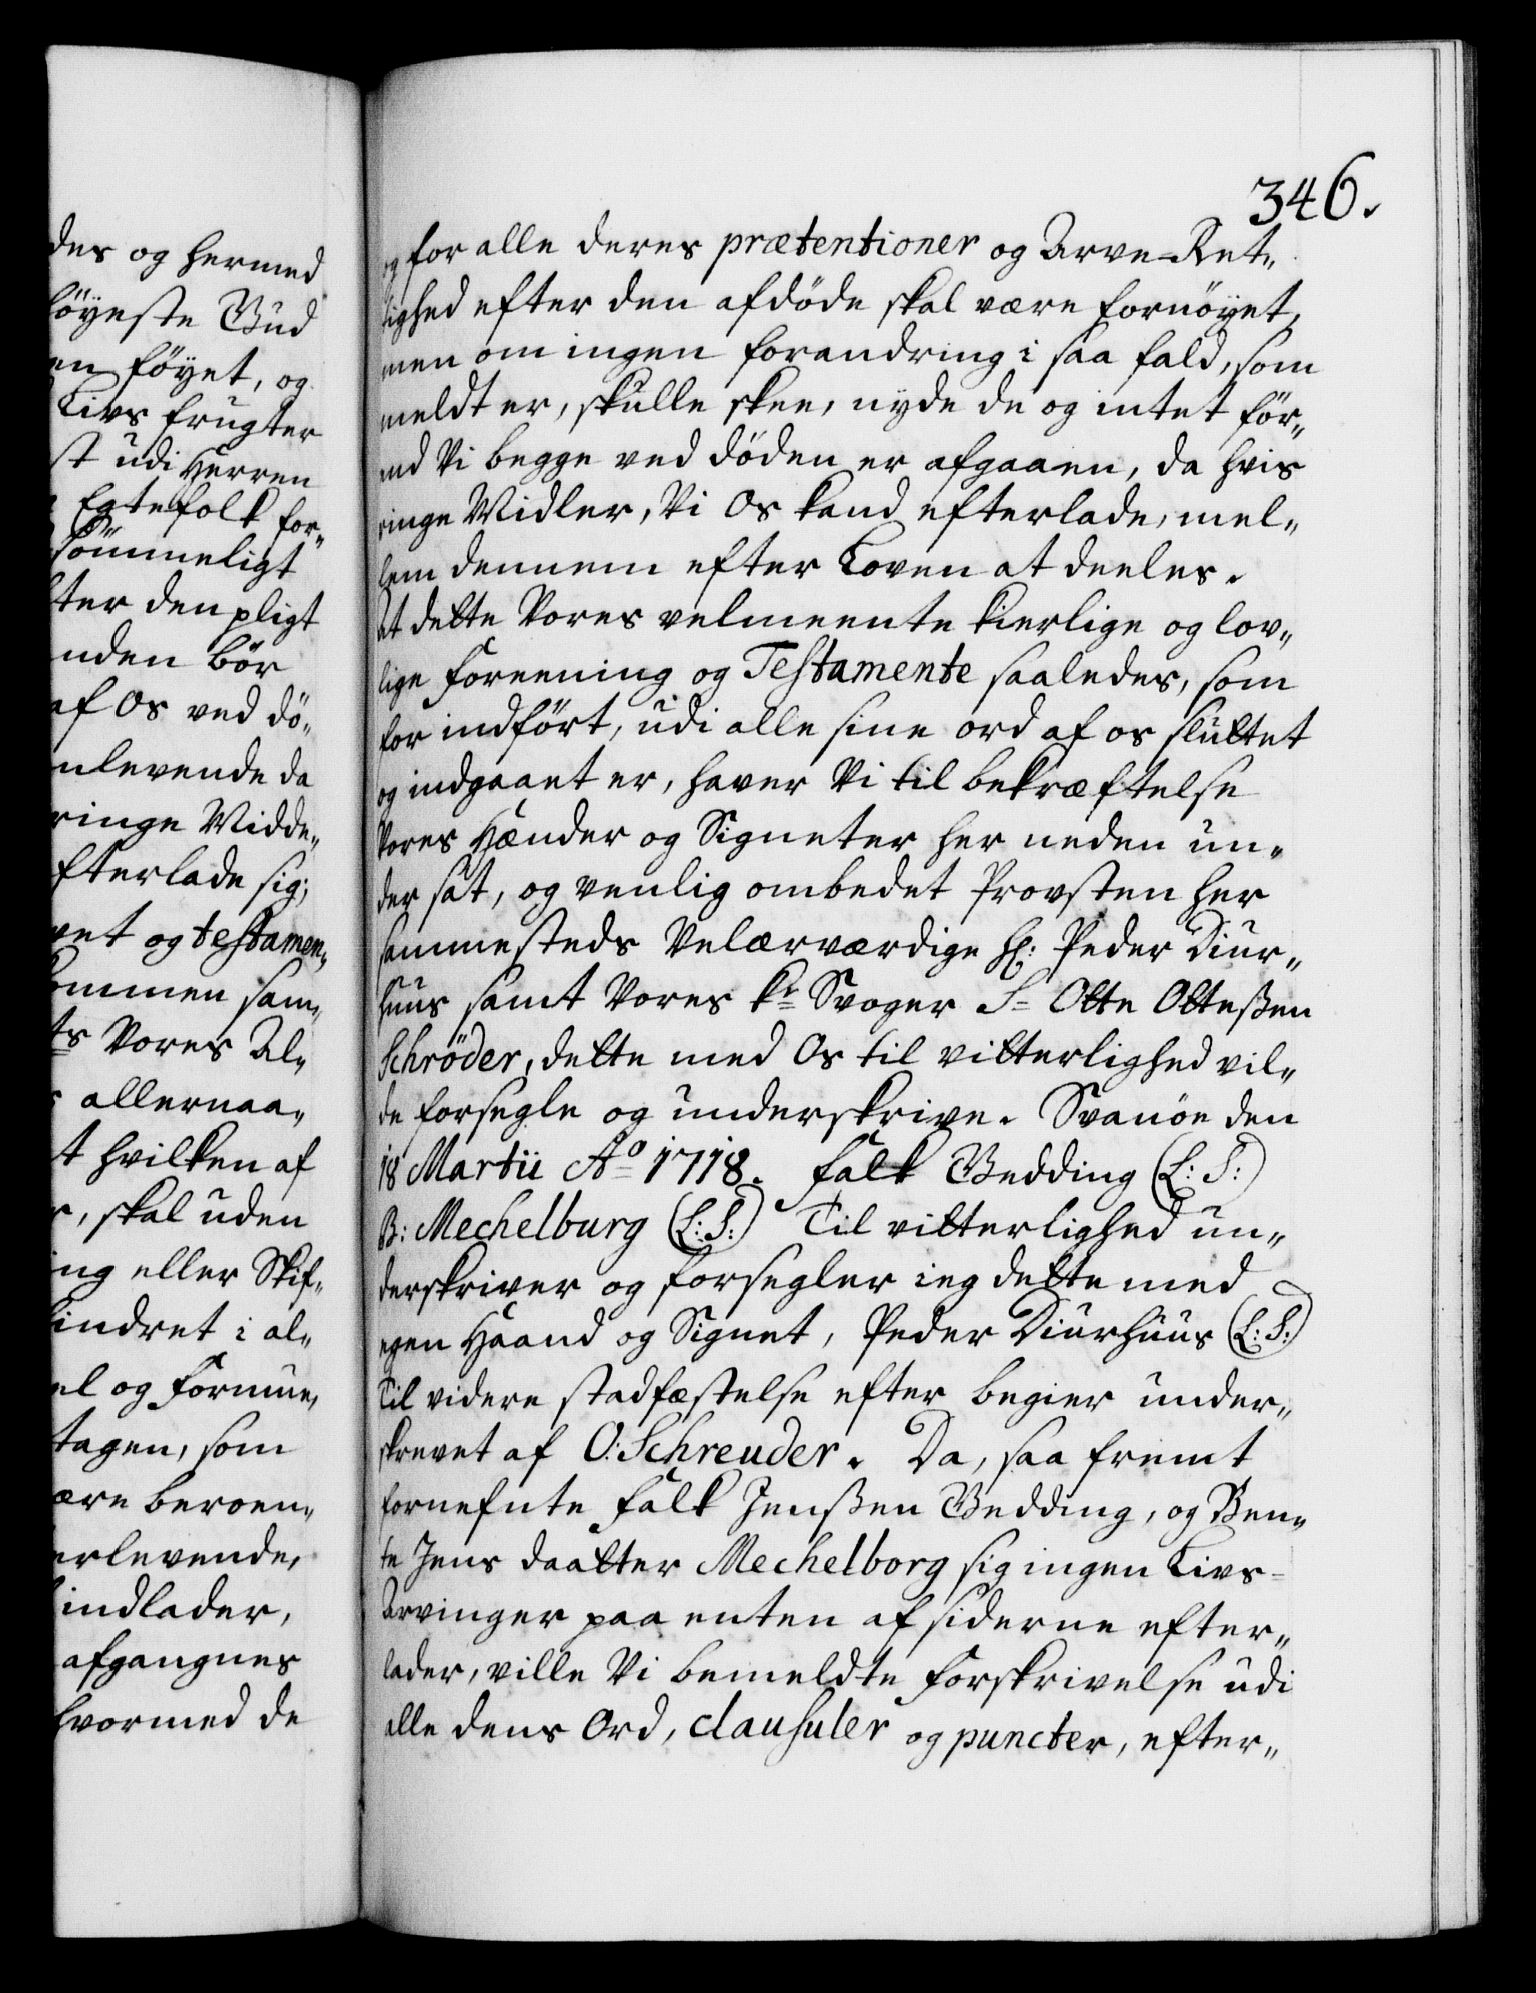 des og hermed
höyeste Bud
en föyet, og
Livs frugter
st udi Herren
Egtefolk for„
sömmeligt
ter den pligt
nden bör
af Os ved dö„
nlevende da
ringe Midde„
fterlade sig;
vet og testamen„
kommen sam„
ts Vores Al„
allernaa„
t hvilken af
r, skal uden
ing eller Skif„
hindret i al„
el og formue,
tagen, som
ære beroen„
erlevende,
indlader,
afgangnes
hvormed de
346.
og for alle deres prætentioner og Arve-Ret„
lighed efter den afdöde skal være fornöyet,
men om ingen forandring i saa fald, som
meldt er, skulle skee, nyde de og intet för„
end Vi begge ved döden er afgaaen, da hvis
ringe Midler, Vi Os kand efterlade, mel„
lem dennem efter Loven at deeles.
At dette Vores velmeente kierlige og lov„
lige foreening og Testamente saaledes, som
for indfört, udi alle sine ord af os sluttet
og indgaaet er, haver Vi til bekræftelse
Vores Hænder og Signeter her neden un„
der sat, og venlig ombedet Provsten her
sammesteds Velærværdige Hr: Peder Diur„
huus samt Vores kr Svoger S= Otte Otteßen
Schröder, dette med Os til vitterlighed vil„
de forsegle og underskrive. Svanöe den
18 Martii Ao 1718. Falk Bedding (L: S:)
B: Mechelburg (L: S:) Til vitterlighed un„
derskriver og forsegler ieg dette med
egen Haand og Signet, Peder Diurhuus (L: S:)
Til videre stadfæstelse efter begier under„
skrevet af O: Schreuder. Da, saa fremt
fornefnte Falk Jenßen Bedding, og Ben„
te Jens daatter Mechelborg sig ingen Livs-
Arvinger paa enten af siderne efter„
lader, ville Vi bemeldte forskrivelse udi
alle dens Ord, clausuler og puncter, efter„